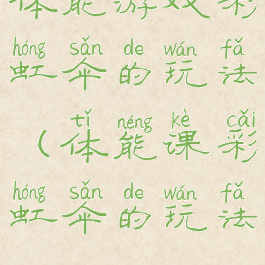 体能游戏彩
hóng sǎn de wán fǎ
虹伞的玩法
tǐ néng kè cǎi
（体能课彩
hóng sǎn de wán fǎ
虹伞的玩法